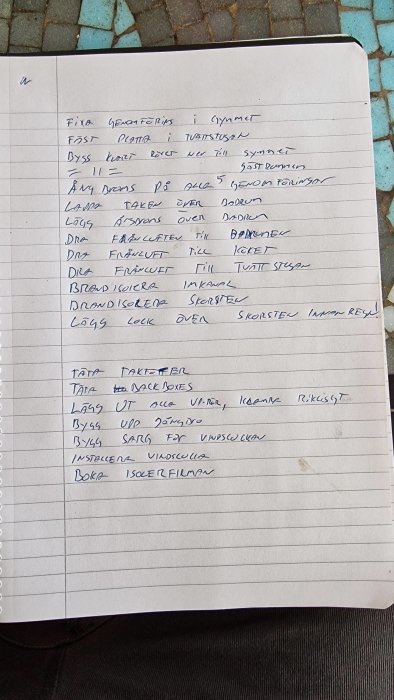 FIXA GENOMFÖRINS i GYMMET
FÄST PLATTA i TVÄTTSTUGAN
BYGG KLART RÖRET NER TILL GYMMET
= 11 = GÄSTRUMMEN
ÅNGBROMS PÅ ALLA GENOMFÖRINGAR
TAKEN ÖVER BADRUM
LÄGG ÅNGBROMS ÖVER BADRUM
DRA FRÅNLUFTEN TILL BADRUMMEN
DRA FRÅNLUFT TILL KÖKET
DRA FRÅNLUFT TILL TVÄTTSTUGAN
BRANDISOLERA IMKANAL
BRANDISOLERA SKORSTEN
LÄGG LOCK ÖVER SKORSTEN INNAN REGN!
TÄTA TAKFOTTER
TÄTA BACKBOXES
LÄGG UT ALLA VP-RÖR, KLAMRA RIKLIGT
BYGG UPP
BYGG SARG FÖR VINDSLUCKAN
INSTALLERA VINDSLUCKA
BOKA ISOLERFIRMAN